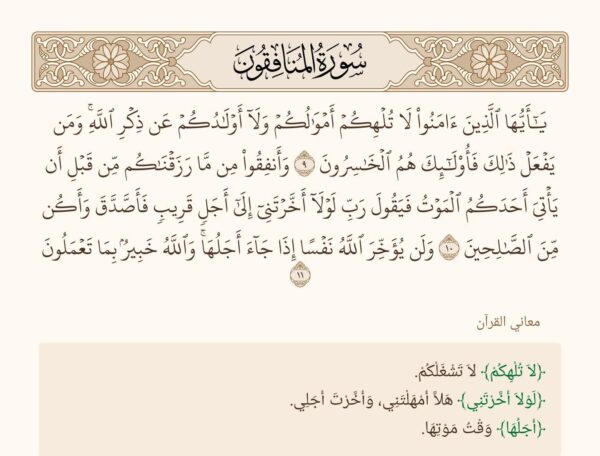 سُورَةُ المُنَافِقُونَ
يَـٰٓأَيُّهَا ٱلَّذِينَ ءَامَنُوا۟ لَا تُلْهِكُمْ أَمْوَٰلُكُمْ وَلَآ أَوْلَـٰدُكُمْ عَن ذِكْرِ ٱللَّهِ ۚ وَمَن
يَفْعَلْ ذَٰلِكَ فَأُو۟لَـٰٓئِكَ هُمُ ٱلْخَـٰسِرُونَ ٩ وَأَنفِقُوا۟ مِن مَّا رَزَقْنَـٰكُم مِّن قَبْلِ أَن
يَأْتِىَ أَحَدَكُمُ ٱلْمَوْتُ فَيَقُولَ رَبِّ لَوْلَآ أَخَّرْتَنِىٓ إِلَىٰٓ أَجَلٍ قَرِيبٍ فَأَصَّدَّقَ وَأَكُن
مِّنَ ٱلصَّـٰلِحِينَ ١٠ وَلَن يُؤَخِّرَ ٱللَّهُ نَفْسًا إِذَا جَآءَ أَجَلُهَا ۚ وَٱللَّهُ خَبِيرٌۢ بِمَا تَعْمَلُونَ
١١
معاني القرآن
﴿لاَ تُلْهِكُمْ﴾ لاَ تَشْغَلْكُمْ.
﴿لَوْلاَ أخَّرْتَنِي﴾ هَلاَّ أمْهَلْتَنِي، وَأخَّرْتَ أجَلِي.
﴿أجَلُهَا﴾ وَقْتُ مَوْتِهَا.